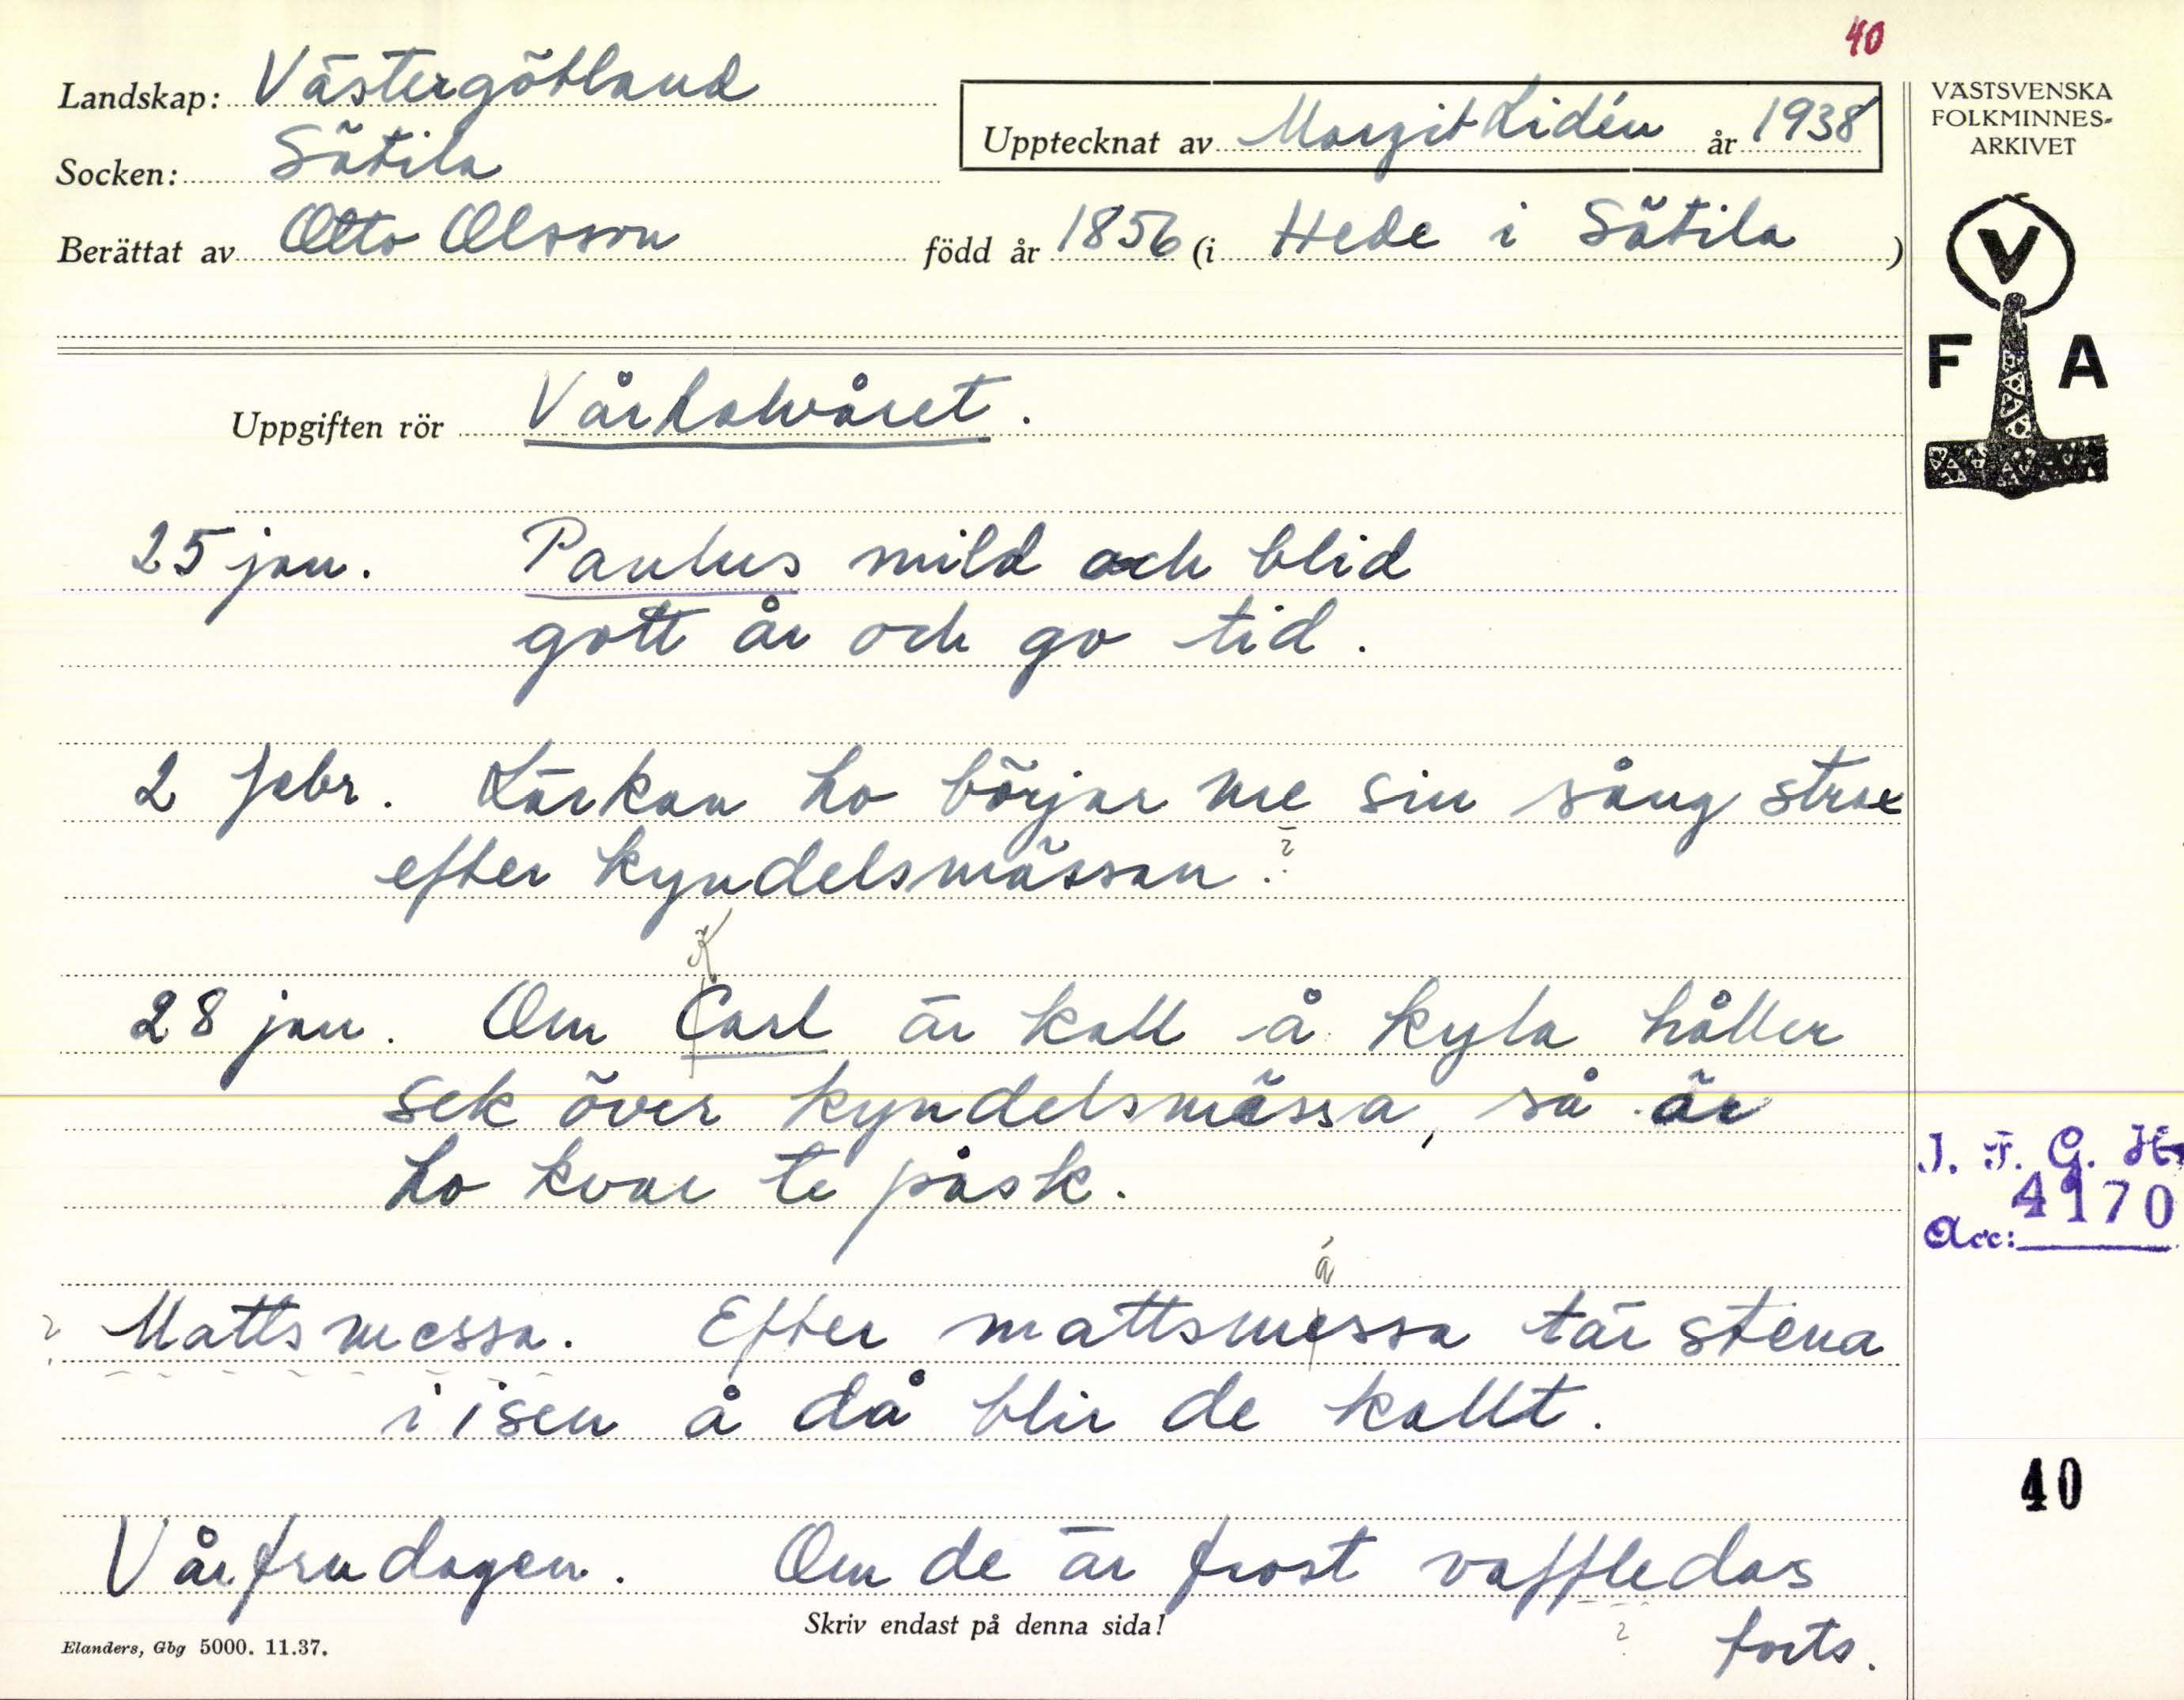 40
Landskap: Västergötland
Upptecknat av Margit Lidén år 1938
Socken: Sätila
Berättat av Otto Olsson född år 1856 (i Hede i Sätila)
VÄSTSVENSKA
FOLKMINNES-
ARKIVET
V
F A
Uppgiften rör Vårhalvåret.
25 jan. Paulus mild och blid
gott år och go tid.
2 febr. Lärkan ho börjar me sin sång strax
efter kyndelsmässan. ?
K
28 jan. Om Carl är kall å kyla håller
sek över kyndelsmässa, så är
ho kvar te påsk.
J. F. G. H.
4170
Acc:
ä
? Mattsmessa. Efter mattsmessa tär stena
i isen å då blir de kallt.
40
Vårfrudagen. Om de är frost vaffledas
Skriv endast på denna sida!
? forts.
Elanders, Gbg 5000. 11.37.